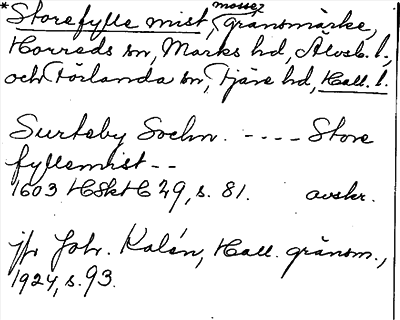 *Storefylle mist, mosse? gränsmärke,
Horreds sn, Marks hd, Älvsb. l.,
och Förlanda sn, Fjäre hd, Hall. l.
Surteby Sochn. ---- Store
fyllemist --
1603 HSkt C 29, s. 81. avskr.
jfr Joh. Kalén, Hall. gränsm.,
1924, s. 93.